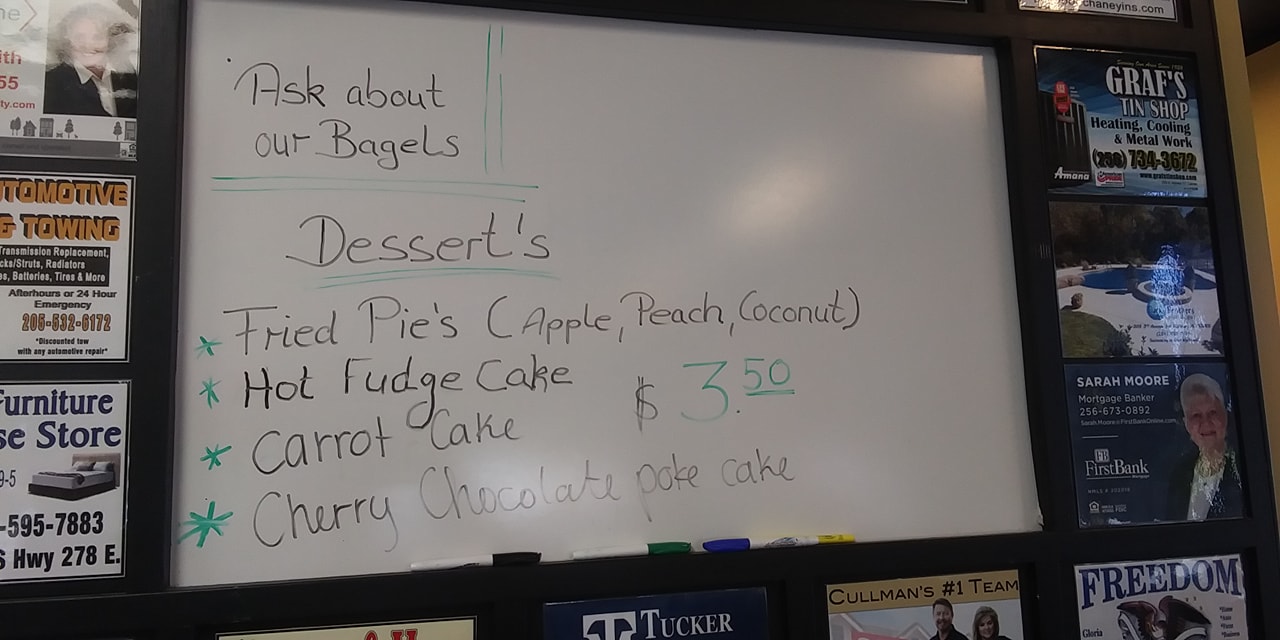 ith
55
ty.com
TOMOTIVE
& TOWING
Transmission Replacement,
cks/Struts, Radiators
es, Batteries, Tires & More
Afterhours or 24 Hour
Emergency
205-532-6172
*Discounted tow
with any automotive repair*
Furniture
se Store
9-5
-595-7883
S Hwy 278 E.
Ask about
our Bagels
Dessert's
* Fried Pie's (Apple, Peach, Coconut)
* Hot Fudge Cake
$3.50
* Carrot Cake
* Cherry Chocolate poke cake
TUCKER
CULLMAN'S #1 TEAM
chaneyins.com
Serving Our Area Since
GRAF'S
TIN SHOP
Heating, Cooling
& Metal Work
(256) 734-3672
www.grafstinshop.com
Amana
SARAH MOORE
Mortgage Banker
256-673-0892
Sarah.Moore@FirstBankOnline.com
FB
FirstBank
Mortgage
FREEDOM
Gloria